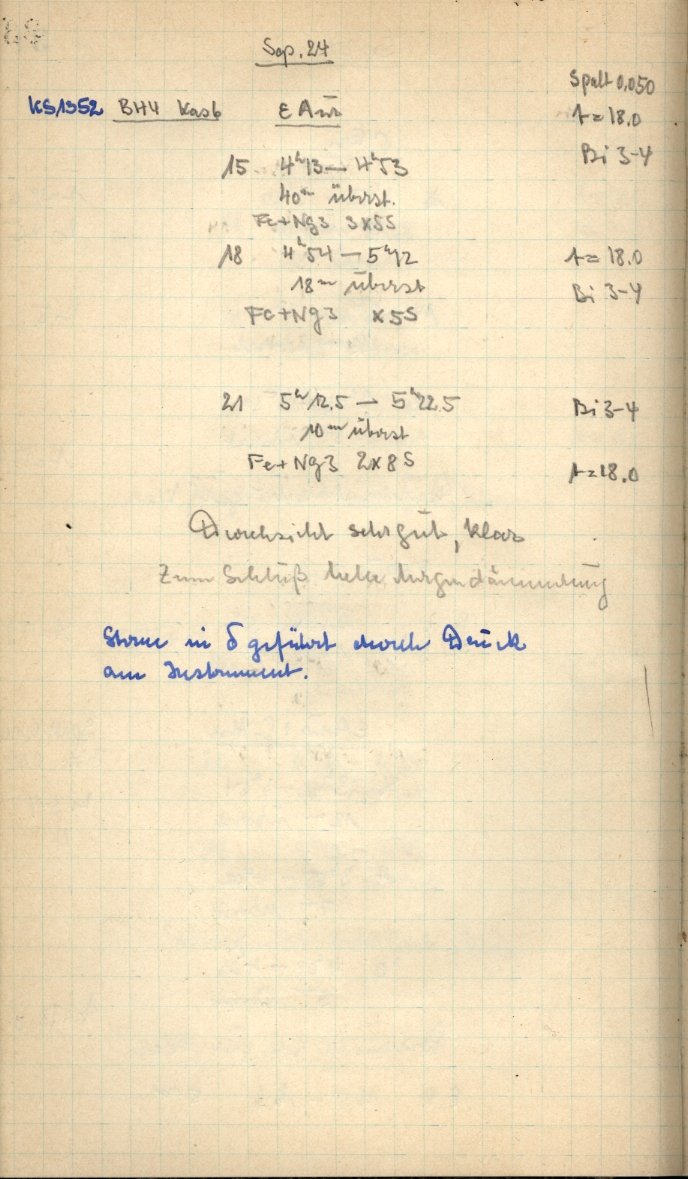 Sep. 24
Spalt 0,050
KS1352 BH4 Kas6 ε Aur
t = 18.0
Bi 3-4
15 4ʰ13 — 4ʰ53
40ᵐ überst.
Fe+Ng3 3x5S
18 4ʰ54 — 5ʰ12 t = 18.0
18ᵐ überst Bi 3-4
Fe+Ng3 x5S
21 5ʰ12.5 — 5ʰ22.5 Bi 3-4
10ᵐ überst
Fe+Ng3 2x8S t=18.0
Durchsicht sehr gut, klar
Zum Schluß helle Morgendämmerung
Sterne in δ geführt durch Druck
am Instrument.